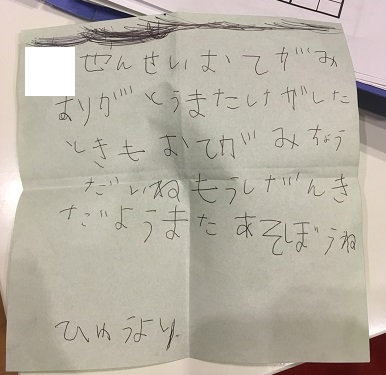 せんせいおてがみ
ありがとうまたけがした
ときもおてがみちょう
だいねもうしだんき
だようまたあそぼうね
ひゅうより